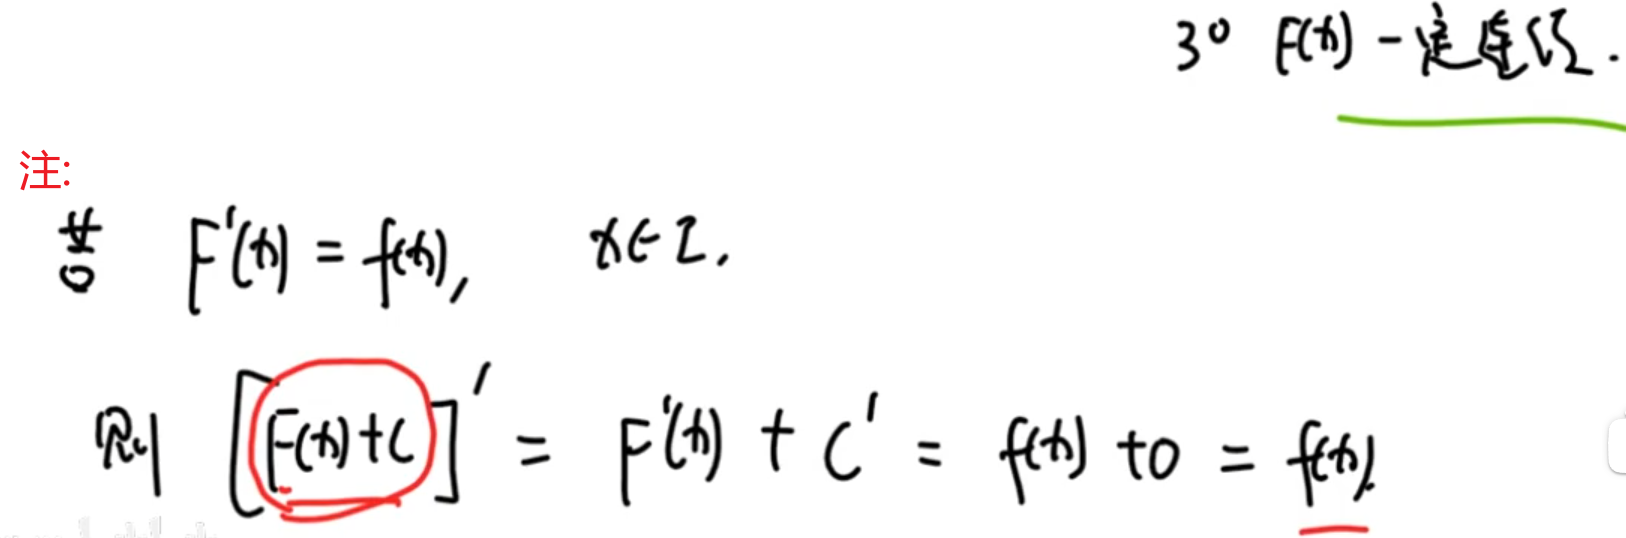 3° F(x) 一定连续.
注:
若 F'(x) = f(x), x∈I.
则 [F(x)+C]' = F'(x) + C' = f(x) + 0 = f(x).